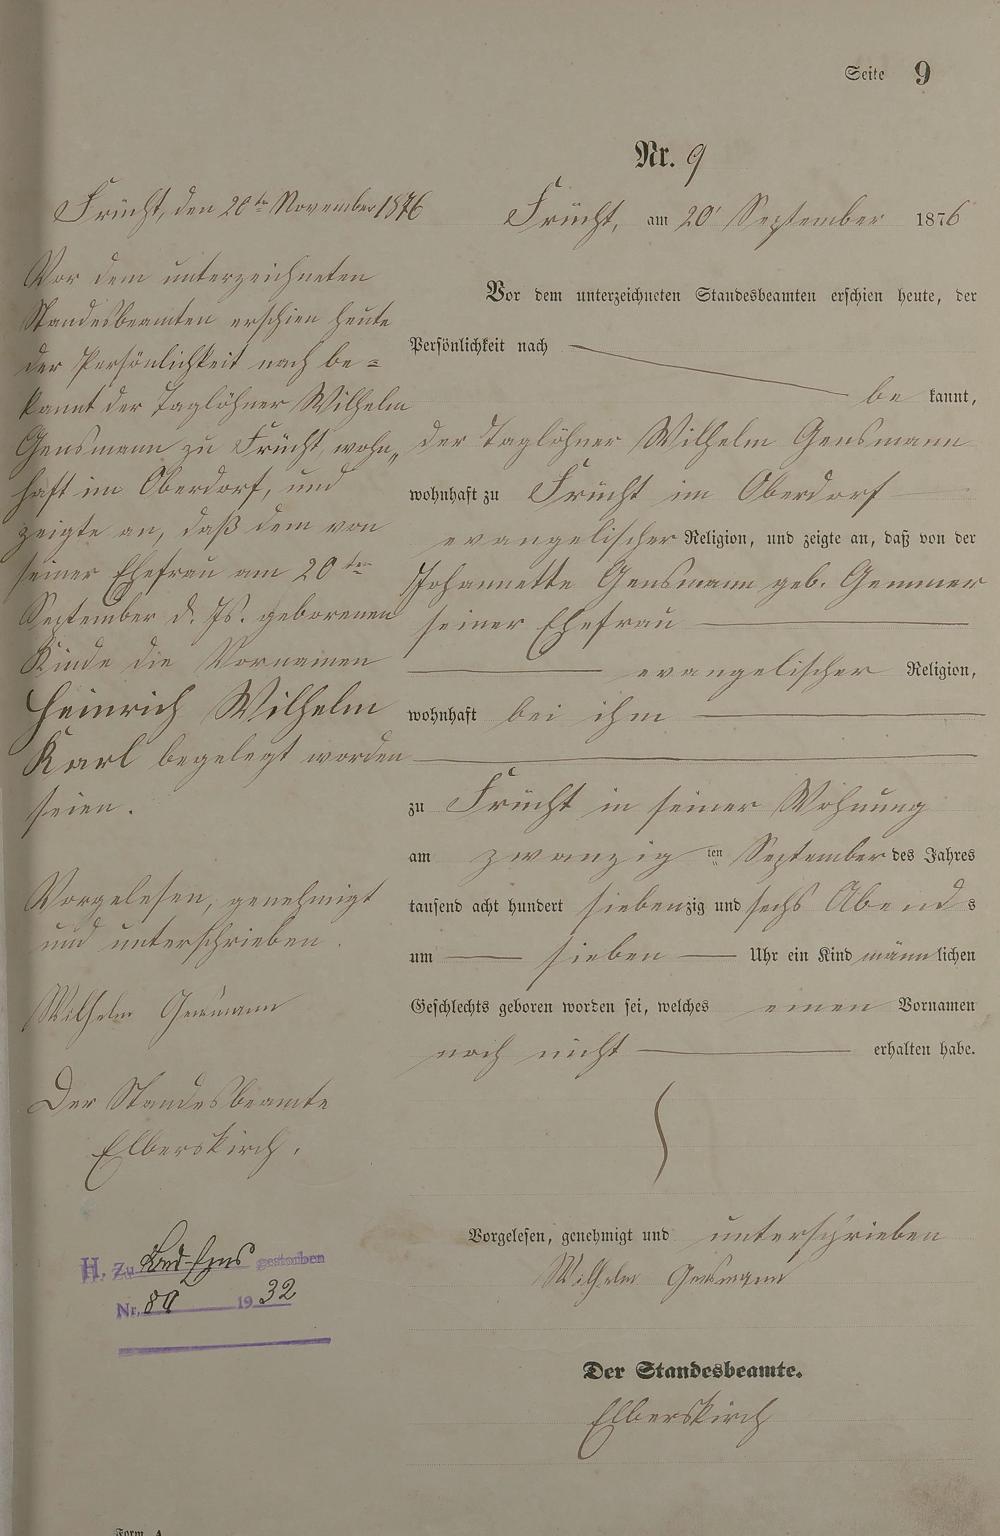 Seite 9
Nr. 9
Frücht, am 20' September 1876
Vor dem unterzeichneten Standesbeamten erschien heute, der
Persönlichkeit nach
be kannt,
der Taglöhner Wilhelm Gensmann
wohnhaft zu Frücht im Oberdorf
evangelischer Religion, und zeigte an, daß von der
Johannette Gensmann geb. Gemmer
seiner Ehefrau
evangelischer Religion,
wohnhaft bei ihm
zu Frücht in seiner Wohnung
am zwanzig ten September des Jahres
tausend acht hundert siebenzig und sechs Abends
um sieben Uhr ein Kind männlichen
Geschlechts geboren worden sei, welches einen Vornamen
noch nicht erhalten habe.
Vorgelesen, genehmigt und unterschrieben
Wilhelm Gensmann
Der Standesbeamte.
Elberskirch
Frücht, den 20ten November 1876
Vor dem unterzeichneten
Standesbeamten erschien heute
der Persönlichkeit nach be=
kannt der Taglöhner Wilhelm
Gensmann zu Frücht wohn„
haft im Oberdorf, und
zeigte an, daß dem von
seiner Ehefrau am 20ten
September d. Js. geborenen
Kinde die Vornamen
Heinrich Wilhelm
Karl begelegt worden
seien.
Vorgelesen, genehmigt
und unterschrieben.
Wilhelm Gensmann
Der Standesbeamte
Elberskirch.
H. Zu Bad-Ems gestorben
Nr. 89 1932
Form. A.